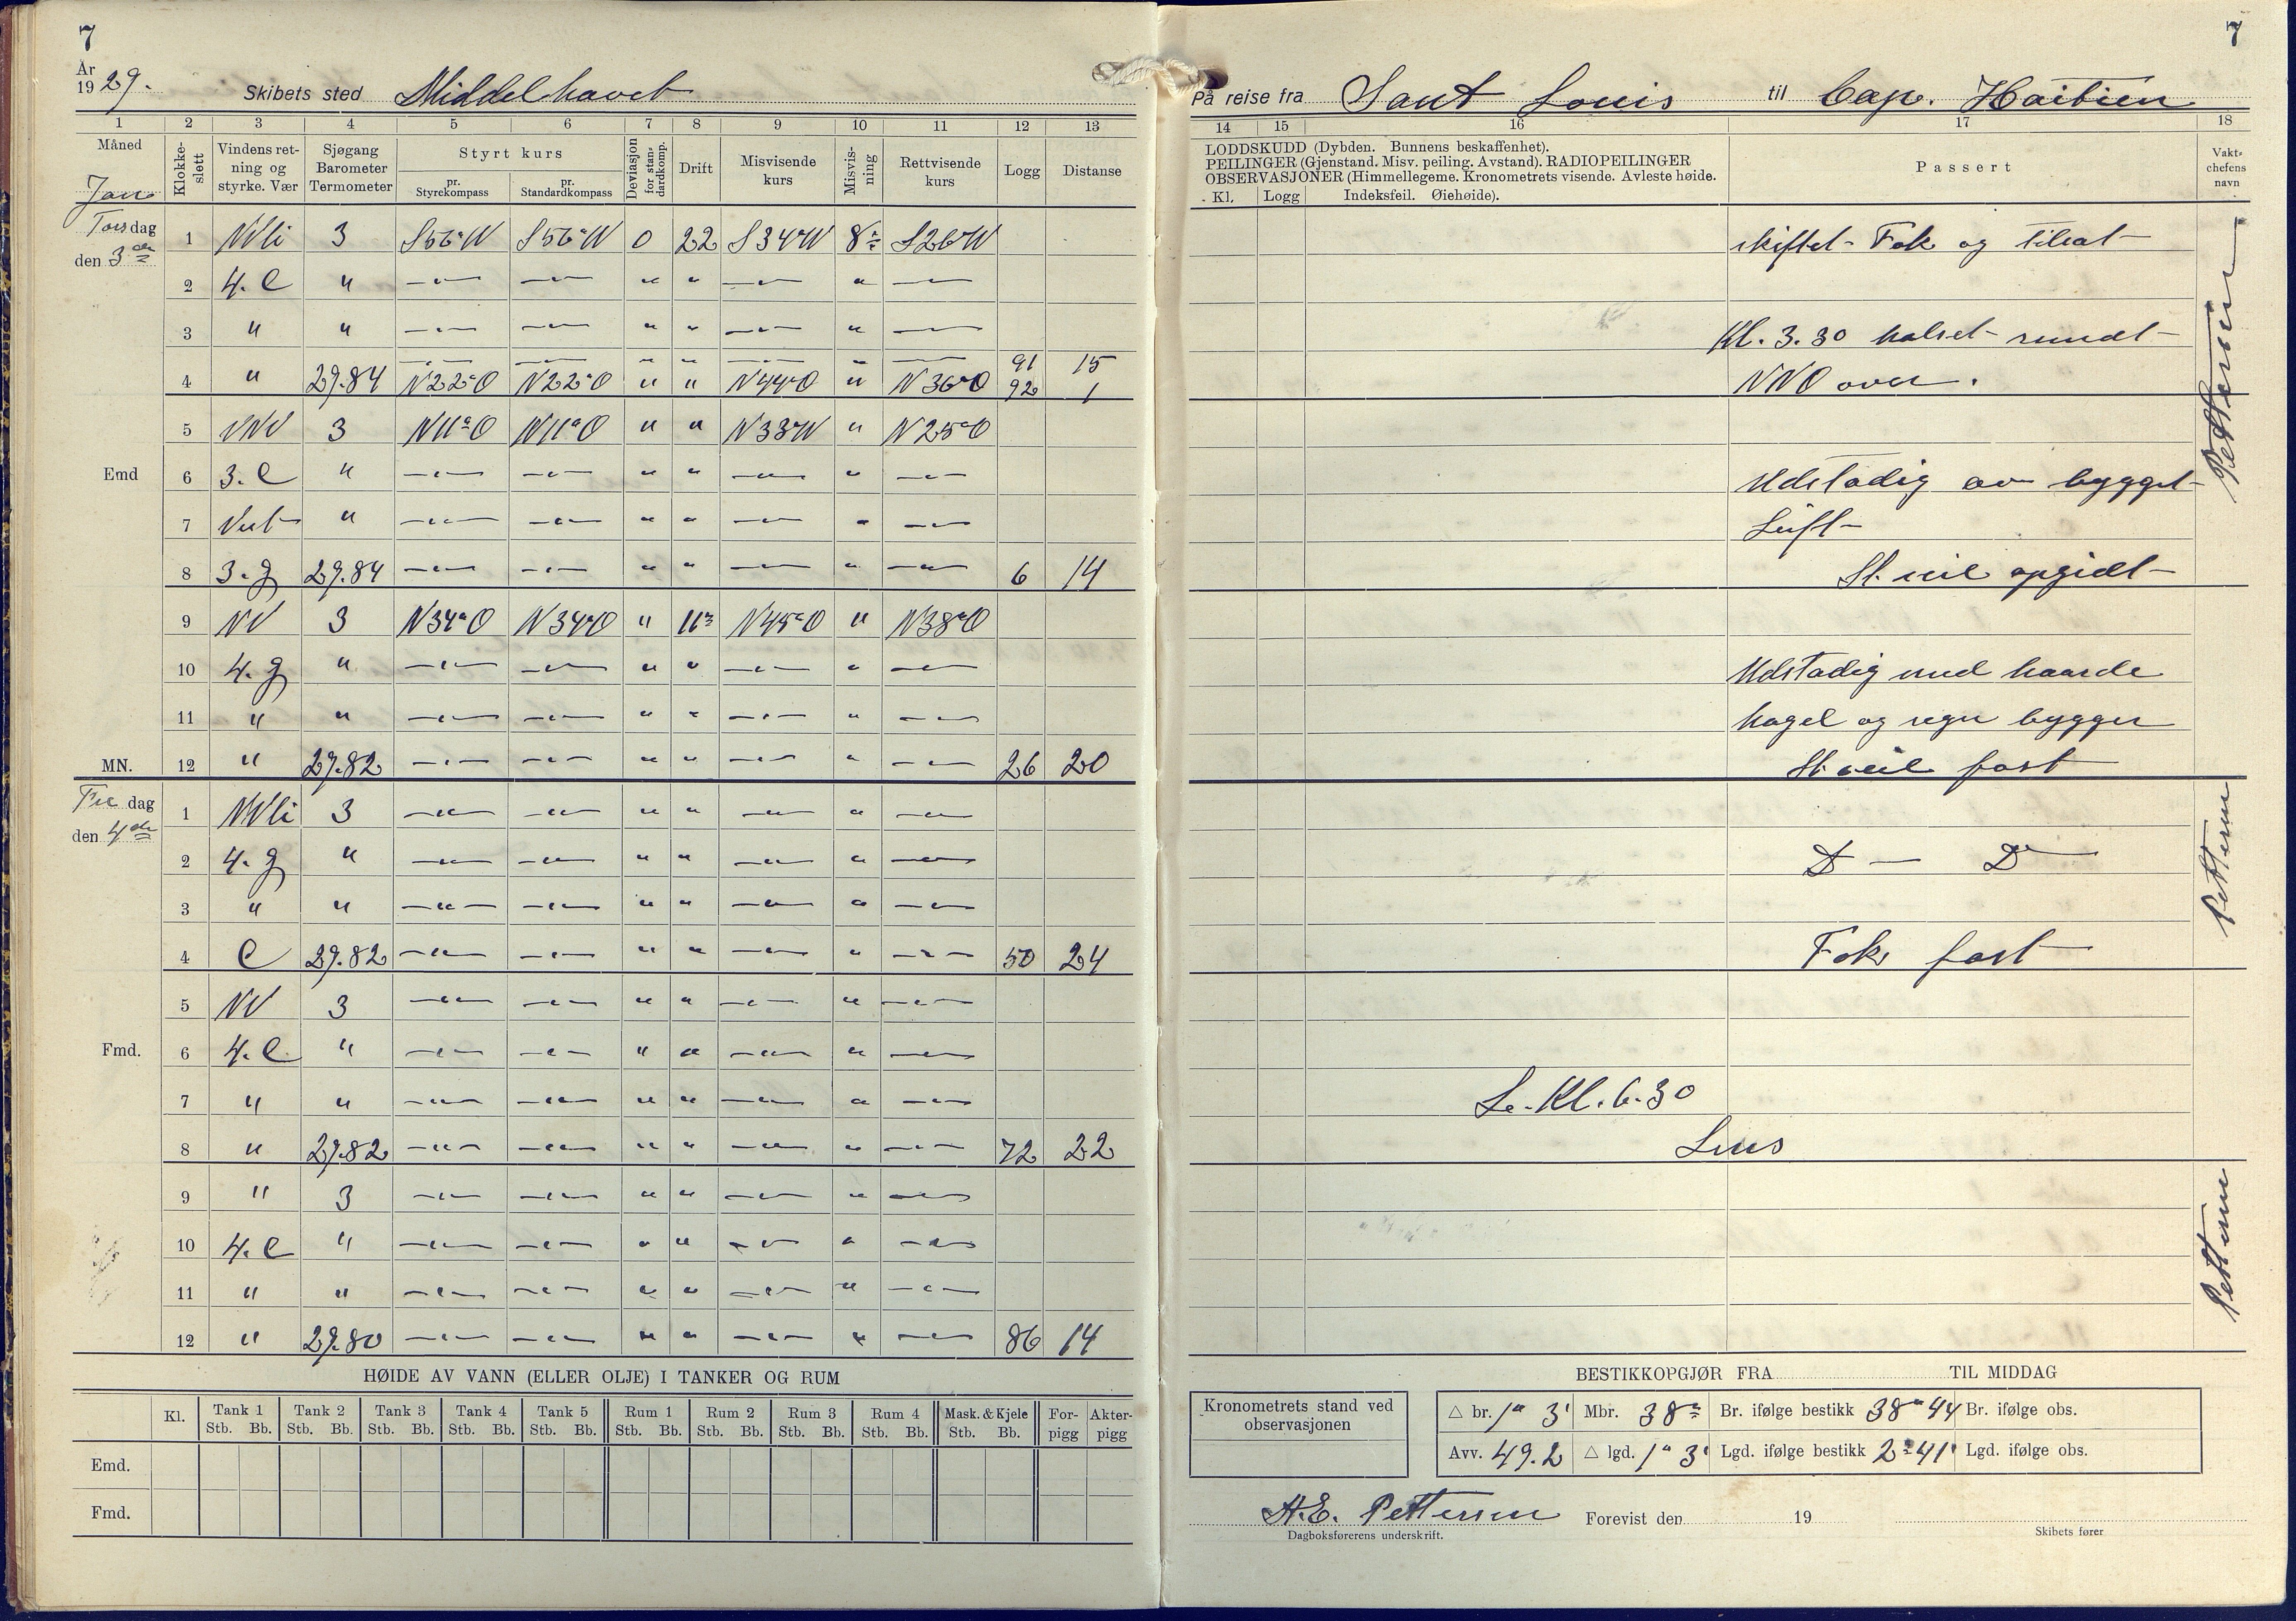 7
År
1929.
Skibets sted Middelhavet
1 2 3 4 5 6 7 8 9 10 11 12 13
Måned
Jan
Klokkeslett
Vindens retning og styrke. Vær
Sjøgang Barometer Termometer
Styrt kurs
pr. Styrekompass
pr. Standardkompass
Deviasjon for standardkomp.
Drift
Misvisende kurs
Misvisning
Rettvisende kurs
Logg
Distanse
Torsdag
den 3de
1 NVli 3 S56°W S56°W 0 22 S34°W 8° S26°W
2 4. C " —"— —"— " " —"— " —"—
3 " " —"— —"— " " —"— " —"—
—"— —"— " " —"— " —"— 91 15
4 " 29.84 N22°O N22°O " " N44°O " N36°O 92 1
5 VNV 3 N11°O N11°O " " N33W " N25°O
Emd
6 3. C " —"— —"— " " —"— " —"—
7 " —"— —"— " " —"— " —"—
8 3. g 29.84 —"— —"— " " —"— " —"— 6 14
9 NV 3 N34°O N34°O " 11° N45°O " N38°O
10 4. g " —"— —"— " " —"— " —"—
11 " " —"— —"— " " —"— " —"—
MN.
12 " 29.82 —"— —"— " " —"— " —"— 26 20
Fredag
den 4de
1 NVli 3 —"— —"— " " —"— " —"—
2 4. g " —"— —"— " " —"— " —"—
3 " " —"— —"— " " —"— " —"—
4 C 29.82 —"— —"— " " —"— " —"— 50 24
5 NV 3 —"— —"— " " —"— " —"—
Fmd.
6 4. C " —"— —"— " " —"— " —"—
7 " " —"— —"— " " —"— " —"—
8 " 29.82 —"— —"— " " —"— " —"— 72 22
9 " 3 —"— —"— " " —"— " —"—
10 4. C " —"— —"— " " —"— " —"—
11 " " —"— —"— " " —"— " —"—
12 " 29.80 —"— —"— " " —"— " —"— 86 14
HØIDE AV VANN (ELLER OLJE) I TANKER OG RUM
Kl. Tank 1 Tank 2 Tank 3 Tank 4 Tank 5 Rum 1 Rum 2 Rum 3 Rum 4 Mask. & Kjele Forpigg Akterpigg
Stb. Bb. Stb. Bb. Stb. Bb. Stb. Bb. Stb. Bb. Stb. Bb. Stb. Bb. Stb. Bb. Stb. Bb. Stb. Bb.
Emd.
Fmd.
7
På reise fra Sant Louis til Cap. Haitien
14 15 16 17 18
LODDSKUDD (Dybden. Bunnens beskaffenhet).
PEILINGER (Gjenstand. Misv. peiling. Avstand). RADIOPEILINGER
OBSERVASJONER (Himmellegeme. Kronometrets visende. Avleste høide.
Kl. Logg Indeksfeil. Øiehøide).
Passert
Vaktchefens navn
skiftet Fok og tilsat
Kl. 3.30 halset rundt
NNO over.
Pettersen
Udstadig av bygget
Luft
St. seil opgidt
Udstadig med haarde
hagel og regn bygger
St. seil fast
D — D —
Pettersen
Fok fast
Le. Kl. 6.30
Lens
Pettersen
BESTIKKOPGJØR FRA TIL MIDDAG
Kronometrets stand ved observasjonen
△ br. 1° 3' Mbr. 38° Br. ifølge bestikk 38° 44 Br. ifølge obs.
Avv. 49.2 △ lgd. 1° 3' Lgd. ifølge bestikk 2° 41' Lgd. ifølge obs.
H.E. Pettersen
Dagboksførerens underskrift.
Forevist den 19
Skibets fører